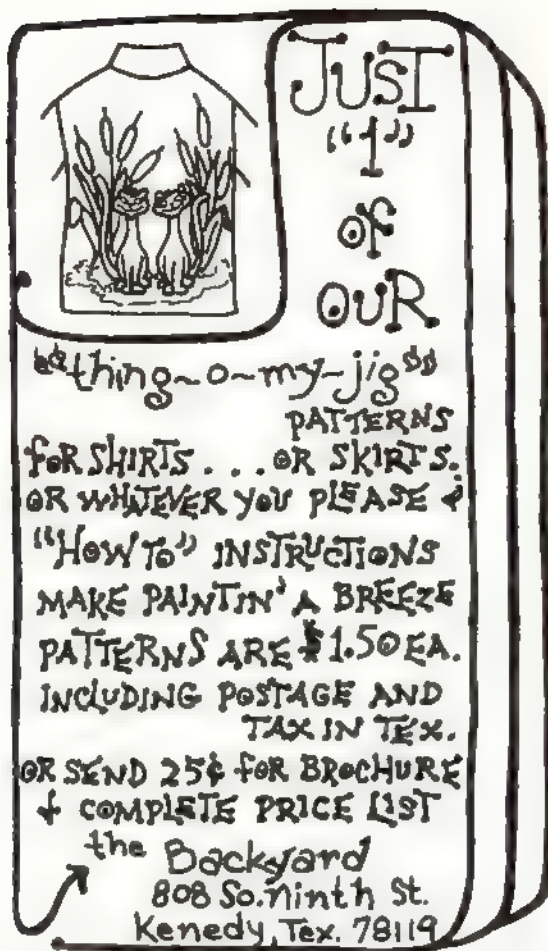 JUST
"1"
of
OUR
"thing-o-my-jig"
PATTERNS
FOR SHIRTS . . . OR SKIRTS.
OR WHATEVER YOU PLEASE &
"HOW TO" INSTRUCTIONS
MAKE PAINTIN' A BREEZE
PATTERNS ARE $1.50 EA.
INCLUDING POSTAGE AND
TAX IN TEX.
OR SEND 25¢ FOR BROCHURE
& COMPLETE PRICE LIST
the Backyard
808 So. Ninth St.
Kenedy, Tex. 78119